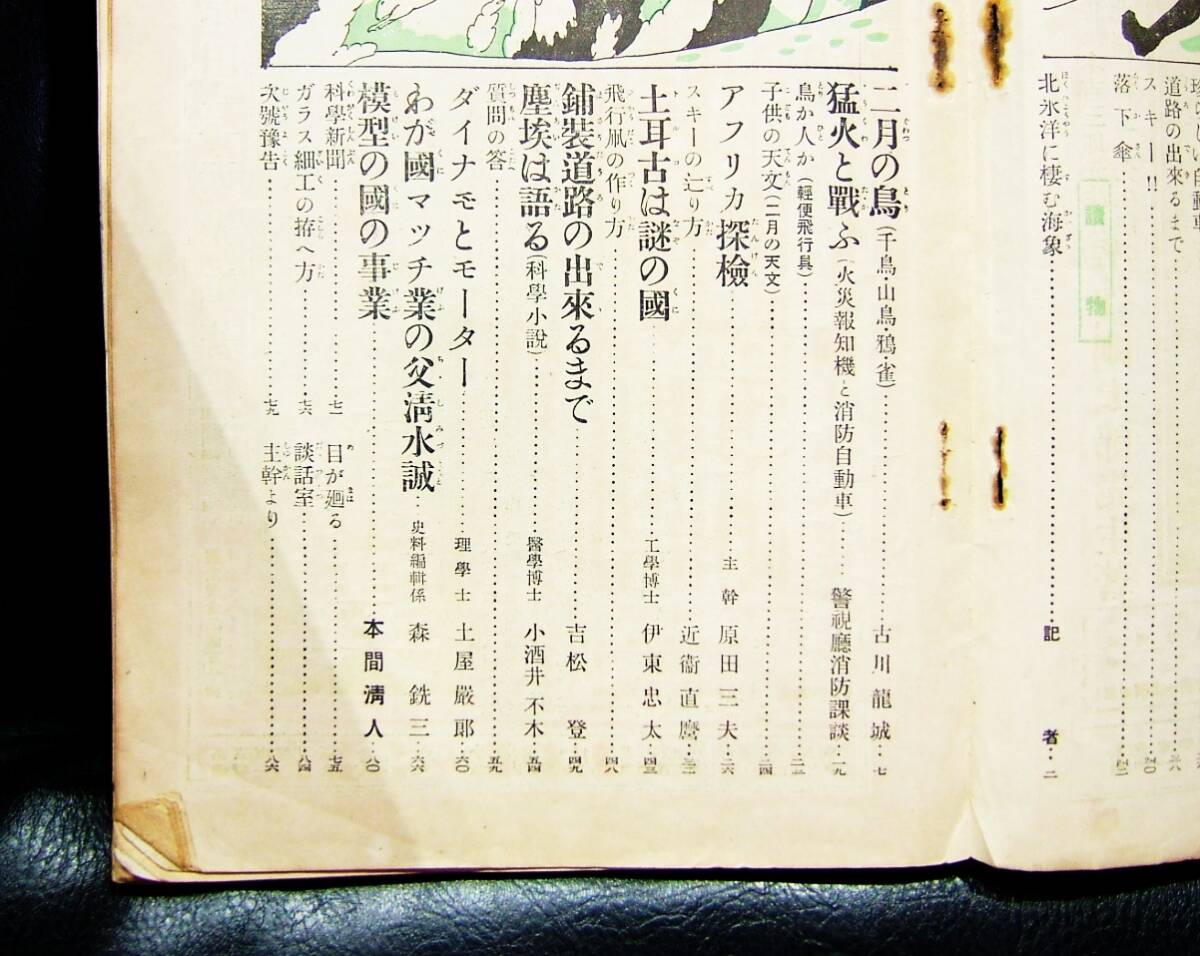 道路の出來るまで
スキー!!
落下傘
讀物
北氷洋に棲む海象 記者 二
二月の鳥(千鳥・山鳥・鴉・雀) 古川龍城 七
猛火と戰ふ(火災報知機と消防自動車) 警視廳消防課談 一九
鳥か人か(輕便飛行具) 二三
子供の天文(二月の天文) 二四
アフリカ探檢 主幹 原田三夫 二六
スキーの辷り方 近衞直麿 三三
土耳古は謎の國 工學博士 伊東忠太 四三
飛行凧の作り方 四八
鋪裝道路の出來るまで 吉松登 四九
塵埃は語る(科學小說) 醫學博士 小酒井不木 五四
質問の答 五九
ダイナモとモーター 理學士 土屋嚴郞 六〇
わが國マッチ業の父淸水誠 史料編輯係 森銑三 六六
模型の國の事業 本間淸人 八〇
科學新聞 七一 目が廻る 七五
ガラス細工の拵へ方 七六 談話室 八四
次號豫告 七九 主幹より 八六